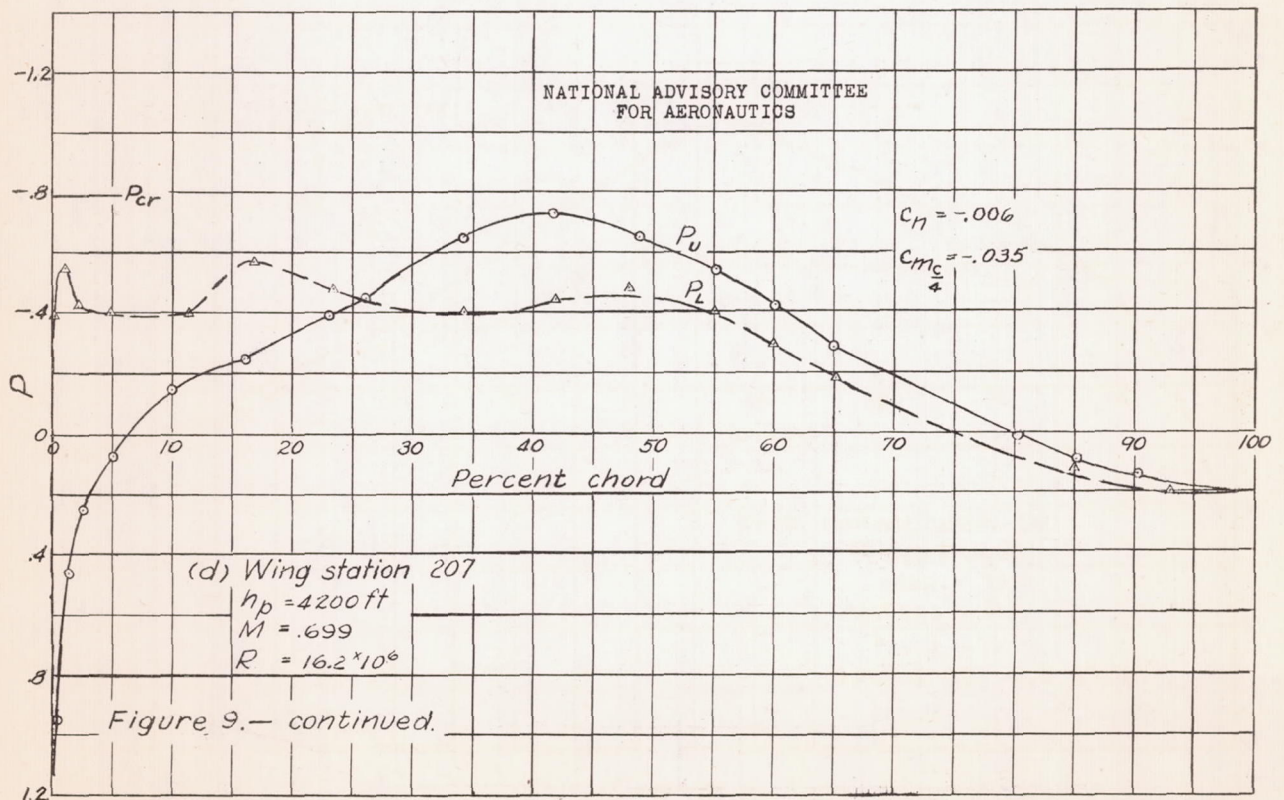 -1.2
NATIONAL ADVISORY COMMITTEE
FOR AERONAUTICS
-.8
Pcr
cn = -.006
Pu
cmc/4 = -.035
PL
-.4
P
0
0 10 20 30 40 50 60 70 90 100
Percent chord
.4
(d) Wing station 207
hp = 4200 ft
M = .699
R = 16.2 x 10⁶
.8
Figure 9.— continued.
1.2